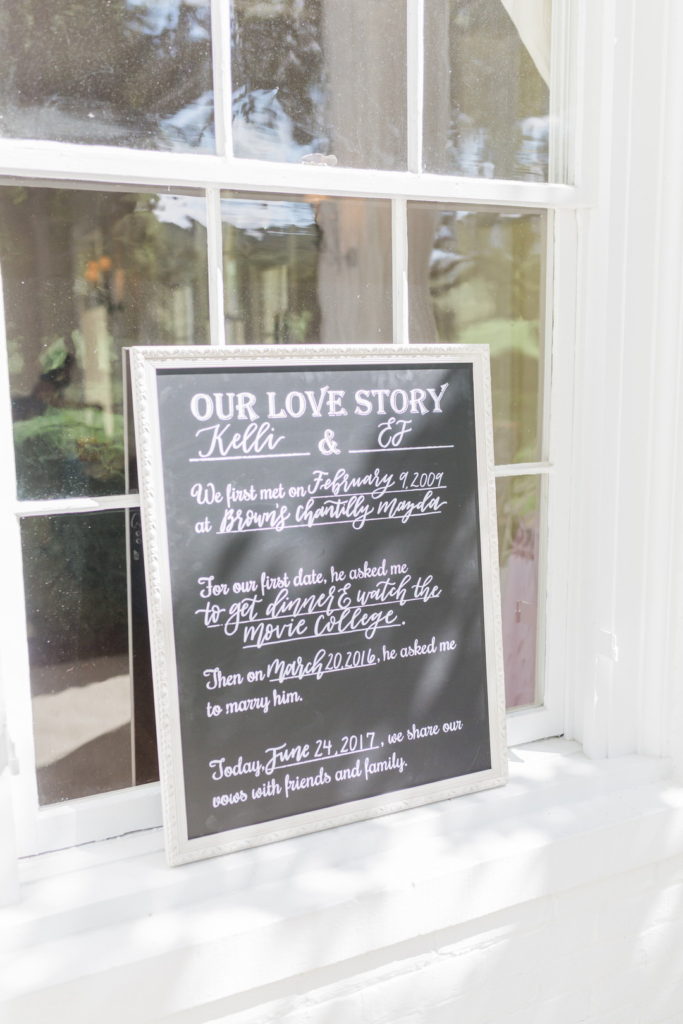 OUR LOVE STORY
Kelli & EJ
We first met on February 9, 2009
at Brown's Chantilly Mazda
For our first date, he asked me
to get dinner & watch the
movie College.
Then on March 20, 2016, he asked me
to marry him.
Today, June 24, 2017, we share our
vows with friends and family.